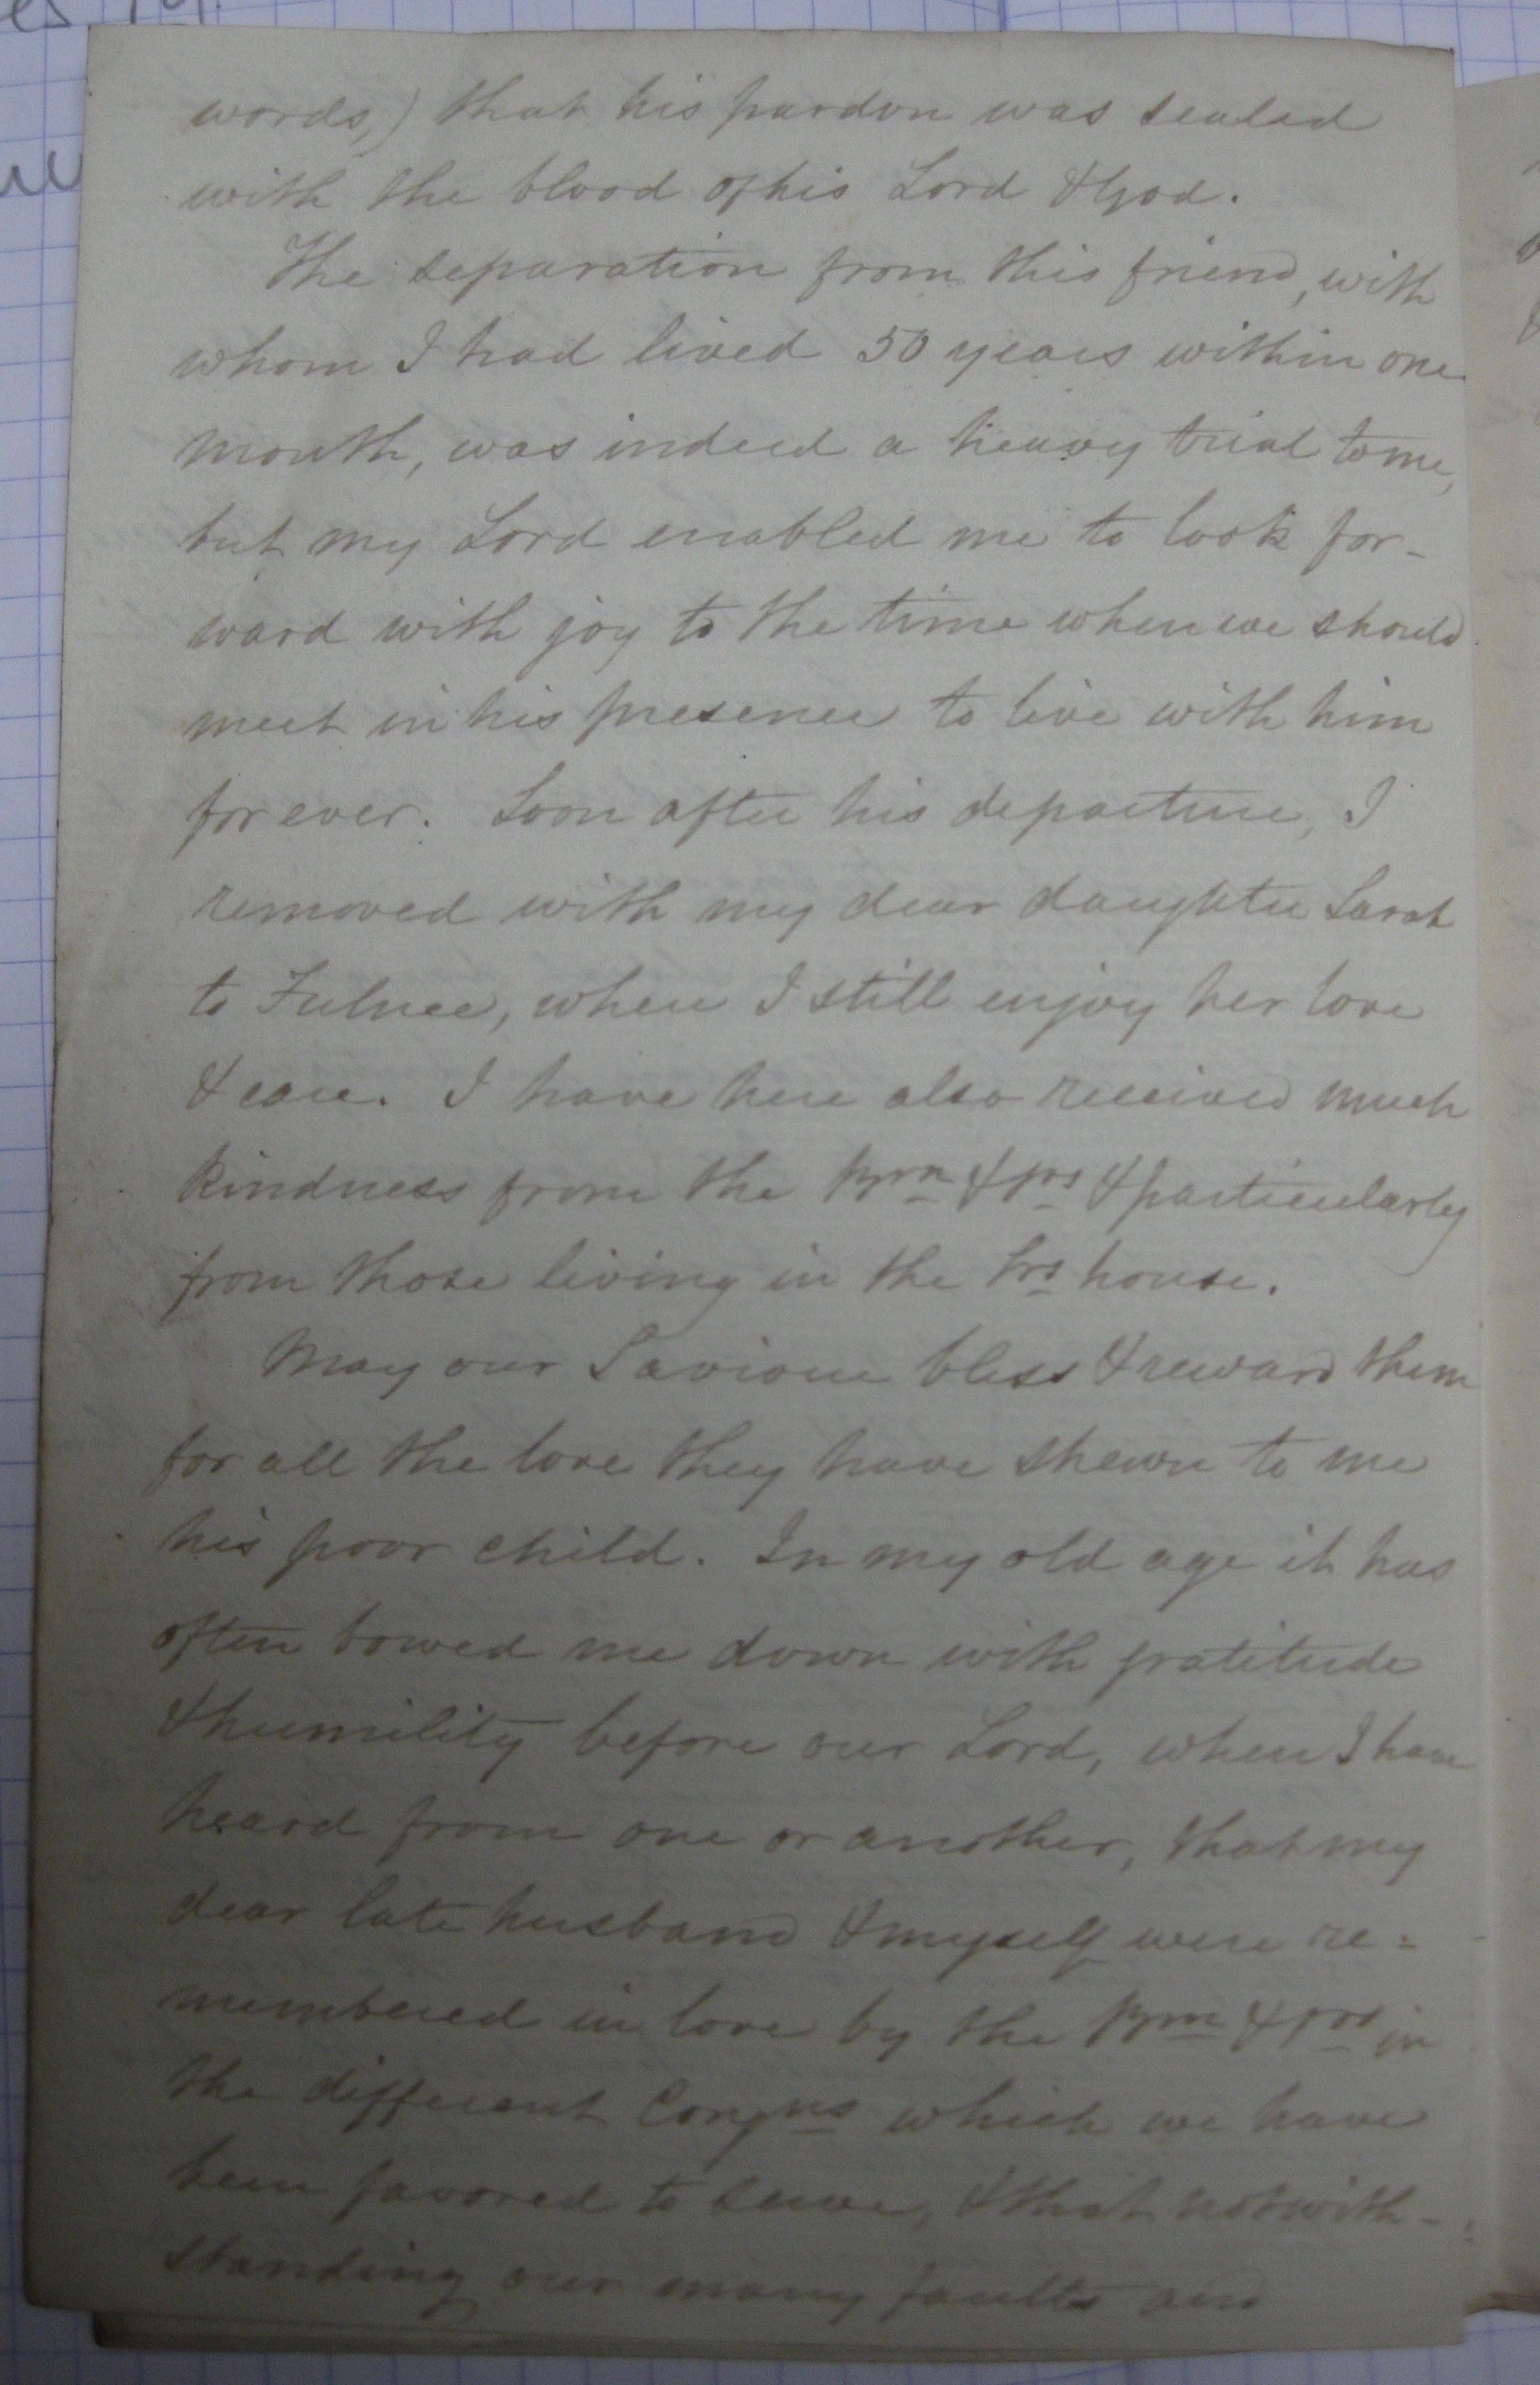 words,) that his pardon was sealed
with the blood of his Lord & God.
The separation from this friend, with
whom I had lived 50 years within one
month, was indeed a heavy trial to me,
but my Lord enabled me to look for-
ward with joy to the time when we should
meet in his presence to live with him
for ever. Soon after his departure, I
removed with my dear daughter Sarah
to Fulnec, where I still enjoy her love
& care. I have here also received much
kindness from the Brn & Srs & particularly
from those living in the Srs house.
May our Saviour bless & reward them
for all the love they have shewn to me
his poor child. In my old age it has
often bowed me down with gratitude
& humility before our Lord, when I have
heard from one or another, that my
dear late husband & myself were re=
membered in love by the Brn & Srs in
the different Congns which we have
been favored to serve, & that notwith-
standing our many faults and